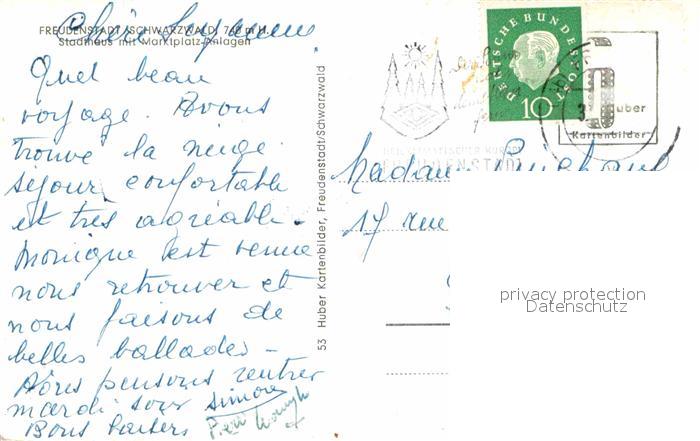 Chère Suzanne
FREUDENSTADT/SCHWARZWALD, 740 m ü. M.
Stadthaus mit Marktplatz-Anlagen
Quel beau
voyage. Avons
trouvé la neige
séjour confortable
et très agréable.
Monique est venue
nous retrouver et
nous faisons de
belles ballades -
pensons rentrer
mardi soir Simone
Bons baisers
53 Huber Kartenbilder, Freudenstadt/Schwarzwald
DEUTSCHE BUNDESPOST
10
FREUDENSTADT
Huber
Kartenbilder
Madame
17 rue
privacy protection
Datenschutz